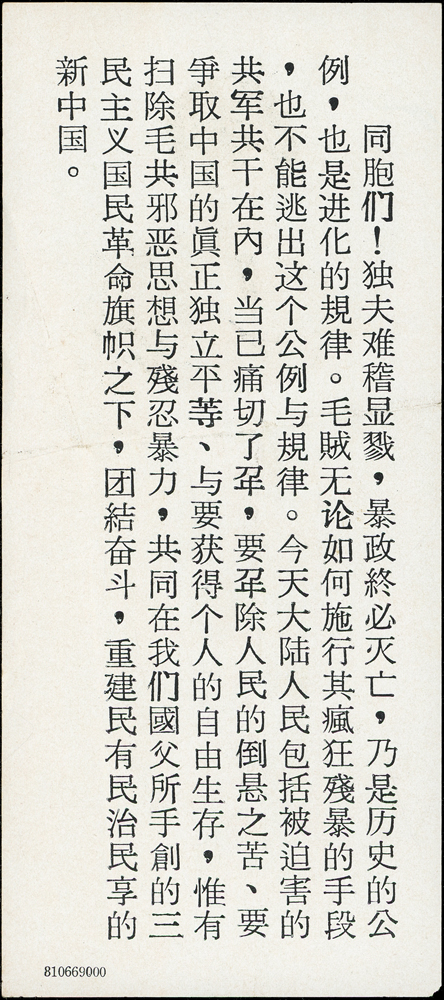 同胞们！独夫难稽显戮，暴政終必灭亡，乃是历史的公
例，也是进化的規律。毛贼无论如何施行其瘋狂殘暴的手段
，也不能逃出这个公例与規律。今天大陆人民包括被迫害的
共军共干在內，当已痛切了，要除人民的倒悬之苦、要
爭取中国的眞正独立平等、与要获得个人的自由生存，惟有
扫除毛共邪恶思想与殘忍暴力，共同在我们國父所手創的三
民主义国民革命旗帜之下，团結奋斗，重建民有民治民享的
新中国。
810669000